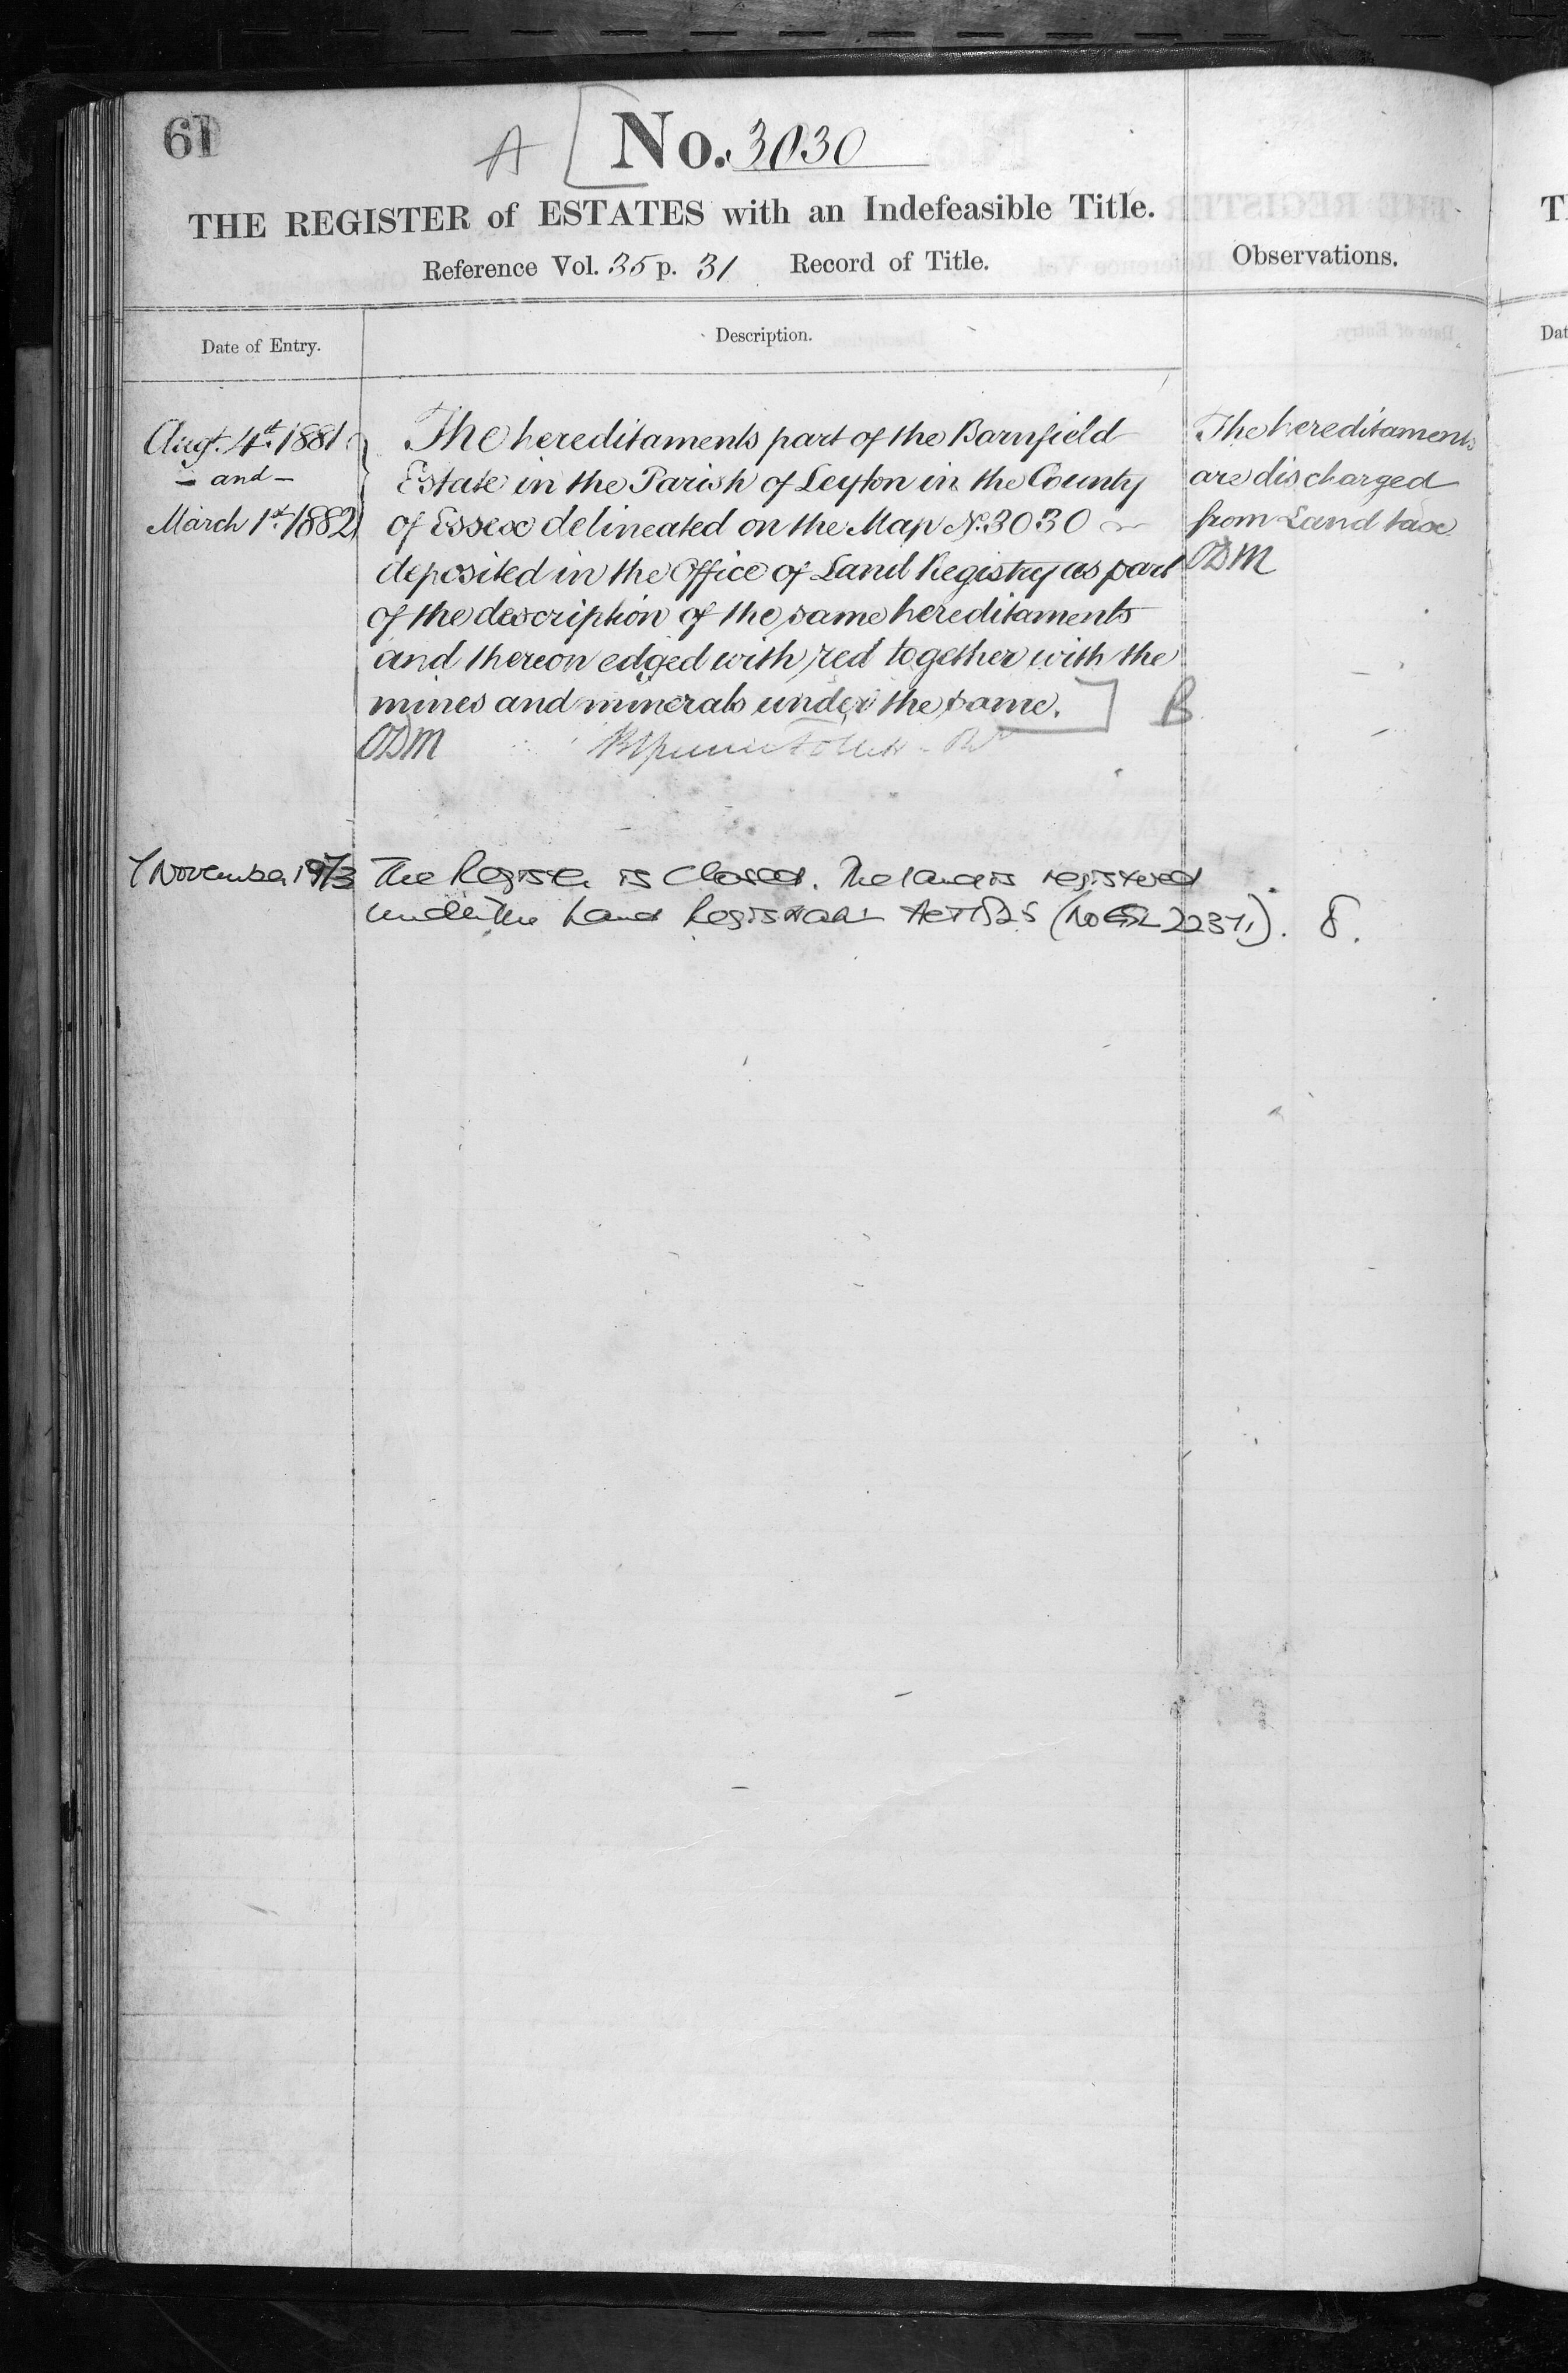 61
A [ No. 3030
THE REGISTER of ESTATES with an Indefeasible Title.
Reference Vol. 35 p. 31 Record of Title.
Observations.
Date of Entry.
Description.
Augt. 4th. 1881
- and -
March 1st. 1882
The hereditaments part of the Barnfield
Estate in the Parish of Leyton in the County
of Essex delineated on the Map No. 3030
deposited in the Office of Land Registry as part
of the description of the same hereditaments
and thereon edged with red together with the
mines and minerals under the same. ] B
The hereditaments
are discharged
from Land tax
November 1973
The Register is closed. The land is registered
under the Land Registration Act 1925
T
Dat